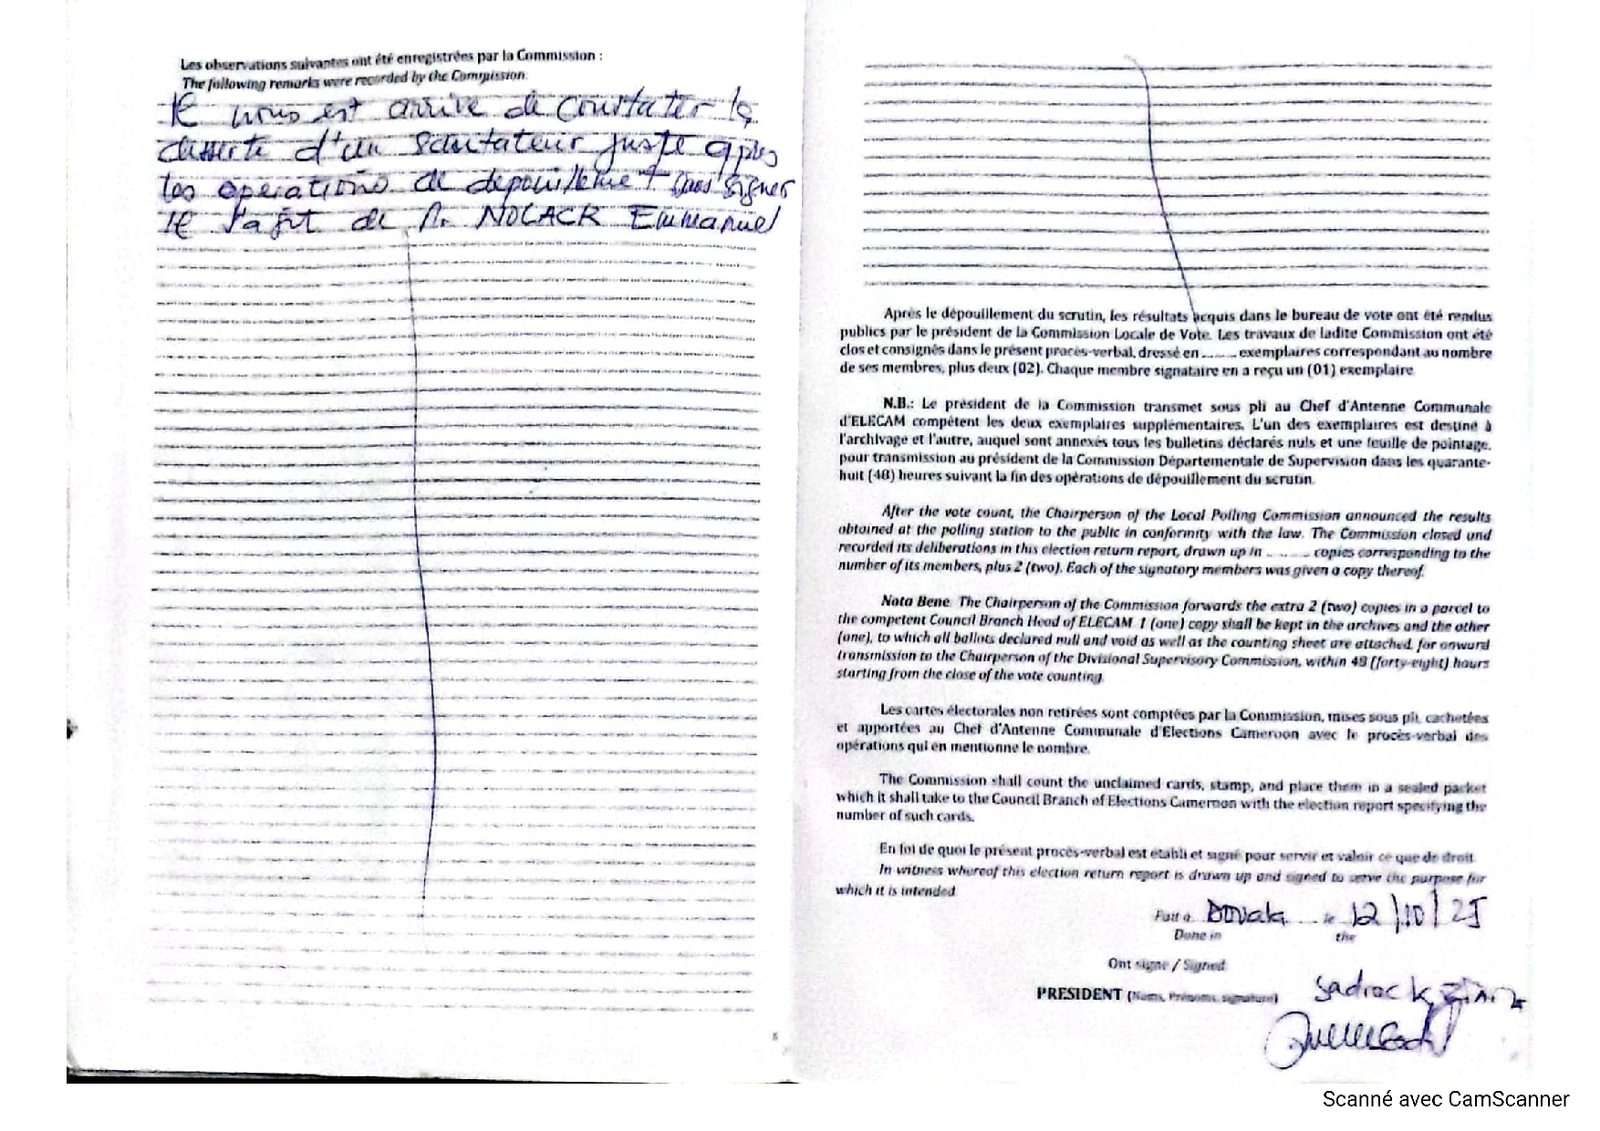 Les observations suivantes ont été enregistrées par la Commission :
The following remarks were recorded by the Commission
Il nous est arrivé de constater la
d'un scrutateur juste après
les operations de depouillement sans signer
Il s'agit de M. NOLACK Emmanuel
Après le dépouillement du scrutin, les résultats acquis dans le bureau de vote ont été rendus
publics par le président de la Commission Locale de Vote. Les travaux de ladite Commission ont été
clos et consignés dans le présent procès-verbal, dressé en ........ exemplaires correspondant au nombre
de ses membres, plus deux (02). Chaque membre signataire en a reçu un (01) exemplaire
N.B.: Le président de la Commission transmet sous pli au Chef d'Antenne Communale
d'ELECAM compétent les deux exemplaires supplémentaires. L'un des exemplaires est destiné à
l'archivage et l'autre, auquel sont annexés tous les bulletins déclarés nuls et une feuille de pointage,
pour transmission au président de la Commission Départementale de Supervision dans les quarante-
huit (48) heures suivant la fin des opérations de dépouillement du scrutin.
After the vote count, the Chairperson of the Local Polling Commission announced the results
obtained at the polling station to the public in conformity with the law. The Commission closed and
recorded its deliberations in this election return report, drawn up in ........ copies corresponding to the
number of its members, plus 2 (two). Each of the signatory members was given a copy thereof.
Nota Bene. The Chairperson of the Commission forwards the extra 2 (two) copies in a parcel to
the competent Council Branch Head of ELECAM 1 (one) copy shall be kept in the archives and the other
(one), to which all ballots declared null and void as well as the counting sheet are attached, for onward
transmission to the Chairperson of the Divisional Supervisory Commission, within 48 (forty-eight) hours
starting from the close of the vote counting.
Les cartes électorales non retirées sont comptées par la Commission, mises sous pli, cachetées
et apportées au Chef d'Antenne Communale d'Elections Cameroon avec le procès-verbal des
opérations qui en mentionne le nombre.
The Commission shall count the unclaimed cards, stamp, and place them in a sealed packet
which it shall take to the Council Branch of Elections Cameroon with the election report specifying the
number of such cards.
En foi de quoi le présent procès-verbal est établi et signé pour servir et valoir ce que de droit
In witness whereof this election return report is drawn up and signed to serve the purpose for
which it is intended
Fait à Douala le 12/10/25
Done in the
Ont signé / Signed
PRESIDENT (Noms, Prénoms, signature) Sadrack
Scanné avec CamScanner